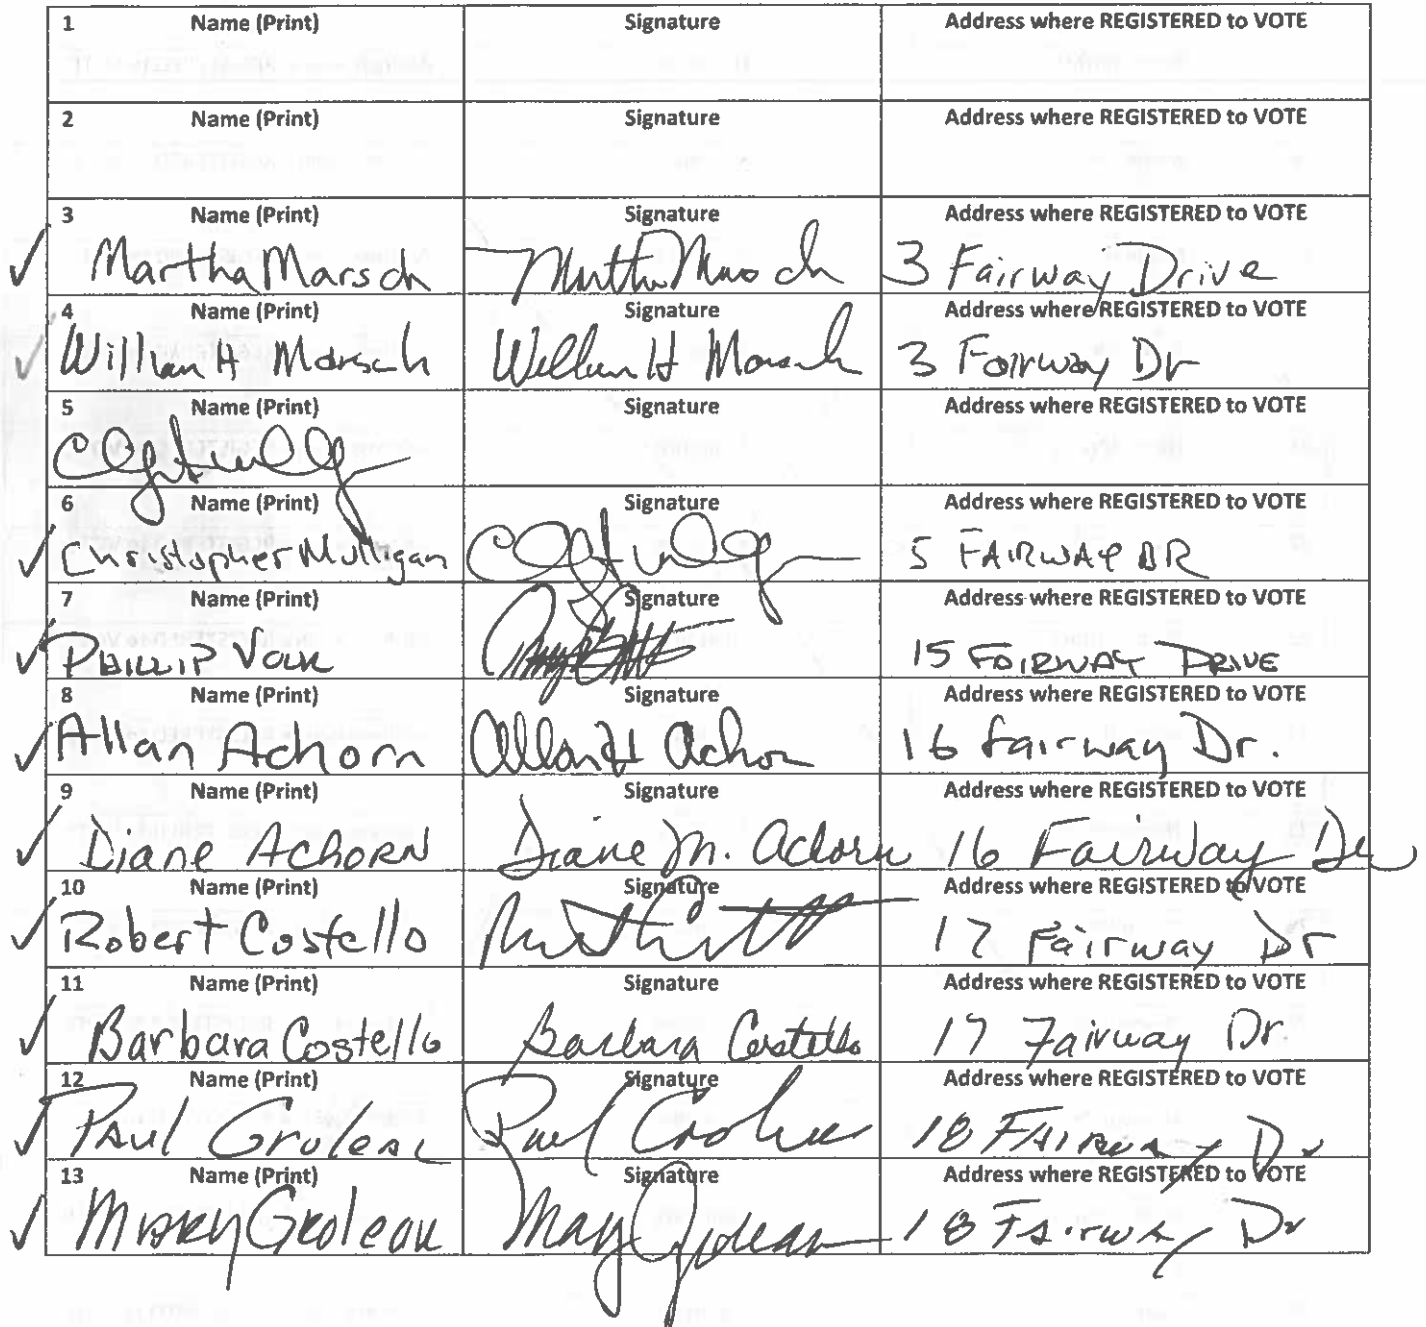 1 Name (Print) Signature Address where REGISTERED to VOTE
2 Name (Print) Signature Address where REGISTERED to VOTE
3 Name (Print) Signature Address where REGISTERED to VOTE
✓ Martha Marsch Martha Marsch 3 Fairway Drive
4 Name (Print) Signature Address where REGISTERED to VOTE
✓ William H Marsch William H Marsch 3 Fairway Dr
5 Name (Print) Signature Address where REGISTERED to VOTE
6 Name (Print) Signature Address where REGISTERED to VOTE
✓ Christopher Mulligan 5 FAIRWAY DR
7 Name (Print) Signature Address where REGISTERED to VOTE
✓ PHILLIP 15 FAIRWAY DRIVE
8 Name (Print) Signature Address where REGISTERED to VOTE
✓ Allan Achorn Allan H Achorn 16 Fairway Dr.
9 Name (Print) Signature Address where REGISTERED to VOTE
✓ Diane AchoRN Diane M. Achorn 16 Fairway Dr
10 Name (Print) Signature Address where REGISTERED to VOTE
✓ Robert Costello 17 Fairway Dr
11 Name (Print) Signature Address where REGISTERED to VOTE
✓ Barbara Costello Barbara Costello 17 Fairway Dr.
12 Name (Print) Signature Address where REGISTERED to VOTE
✓ PAul Groleau Paul Groleau 18 FAIRWAY Dr
13 Name (Print) Signature Address where REGISTERED to VOTE
✓ MARY GRoleau Mary Groleau 18 FAIRWAY Dr